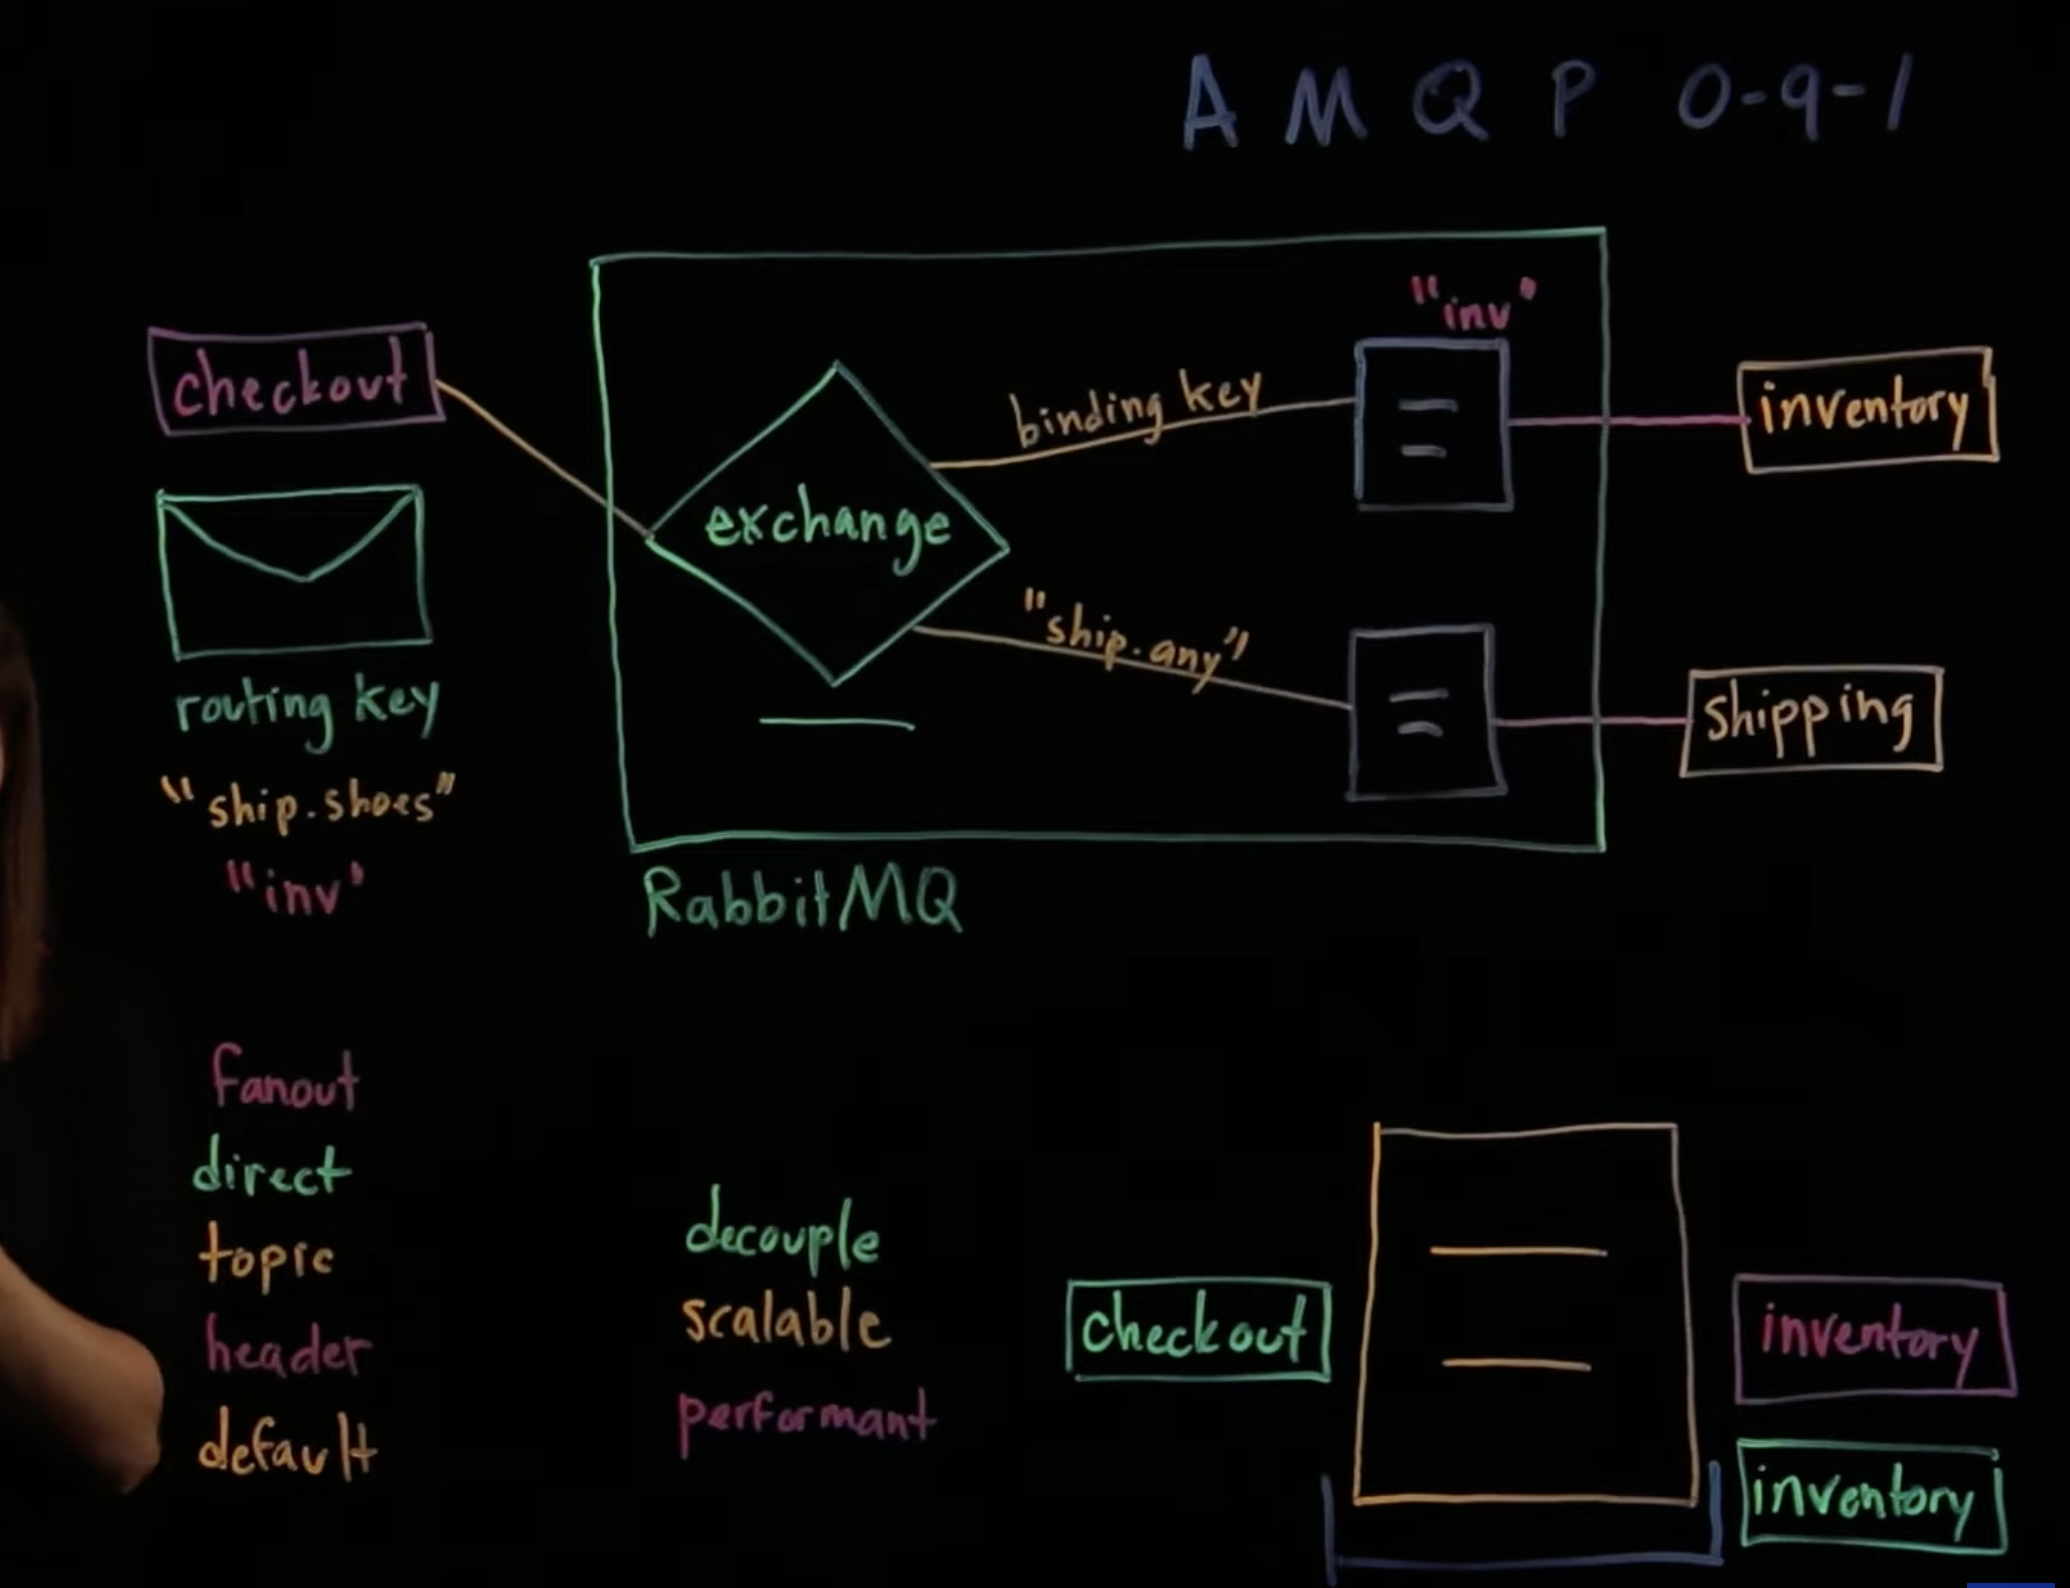 A M Q P 0-9-1
checkout
routing key
"ship.shoes"
"inv"
exchange
binding key
"ship.any"
"inv"
inventory
shipping
RabbitMQ
fanout
direct
topic
header
default
decouple
scalable
performant
checkout
inventory
inventory